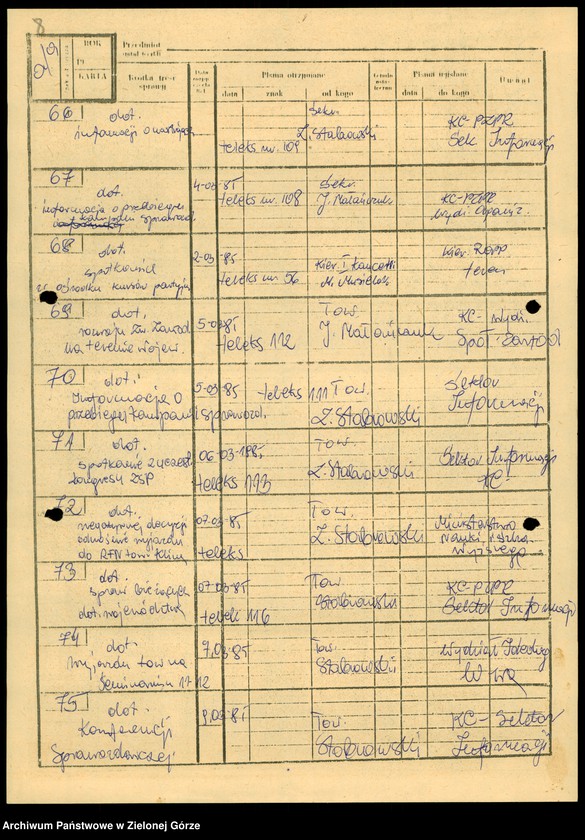 8
ROK
KARTA
Przedmiot
Krótka treść
sprawy
Pisma otrzymane
data
znak
od kogo
Pisma wysłane
data
do kogo
Uwagi
66 dot.
informacji o
teleks nr. 109
Sekr.
Z. Stabrowski
KC-PZPR
Sek. Informacji
67
dot.
informacja o przebiegu
kampanii sprawozd.
4-03-85
teleks nr. 108
Sekr.
J. Małańczuk
KC-PZPR
Wydz. Organiz.
68
dot.
spotkanie
w ośrodku kursów partyjn
2-03-85
teleks nr 56
Kier. I Kancelarii
Kier. ROPP
teren
69
dot.
rozwoju Zw. Zawod
na terenie wojew.
5-03-85
teleks 112
Tow.
J. Małańczuk
KC- wydz.
Społ. Zawod
70
dot.
Informacja o
przebiegu kampanii sprawozd.
5-03-85
teleks 111
Tow.
Z. Stabrowski
Sektor
Informacji
71
dot.
spotkanie z uczest.
kongresu ZSP
06-03-1985
teleks 113
Tow.
Z. Stabrowski
Sektor Informacji
KC
72
dot.
negatywnej decyzji
odnośnie wyjazdu
do RFN tow. Klim
07-03-85
teleks
Tow.
Z. Stabrowski
Ministerstwo
Nauki i Szkol.
Wyższego
73
dot.
spraw bieżących
dot. województwa
07-03-85
teleks 116
Tow.
Stabrowski
KC-PZPR
Sektor Informacji
74
dot.
wyjazdu tow na
Seminarium
9.03-85
Tow.
Stabrowski
Wydział Ideolog
75
dot.
Konferencji
Sprawozdawczej
9.03-85
Tow.
Stabrowski
KC- Sektor
Informacji
Archiwum Państwowe w Zielonej Górze